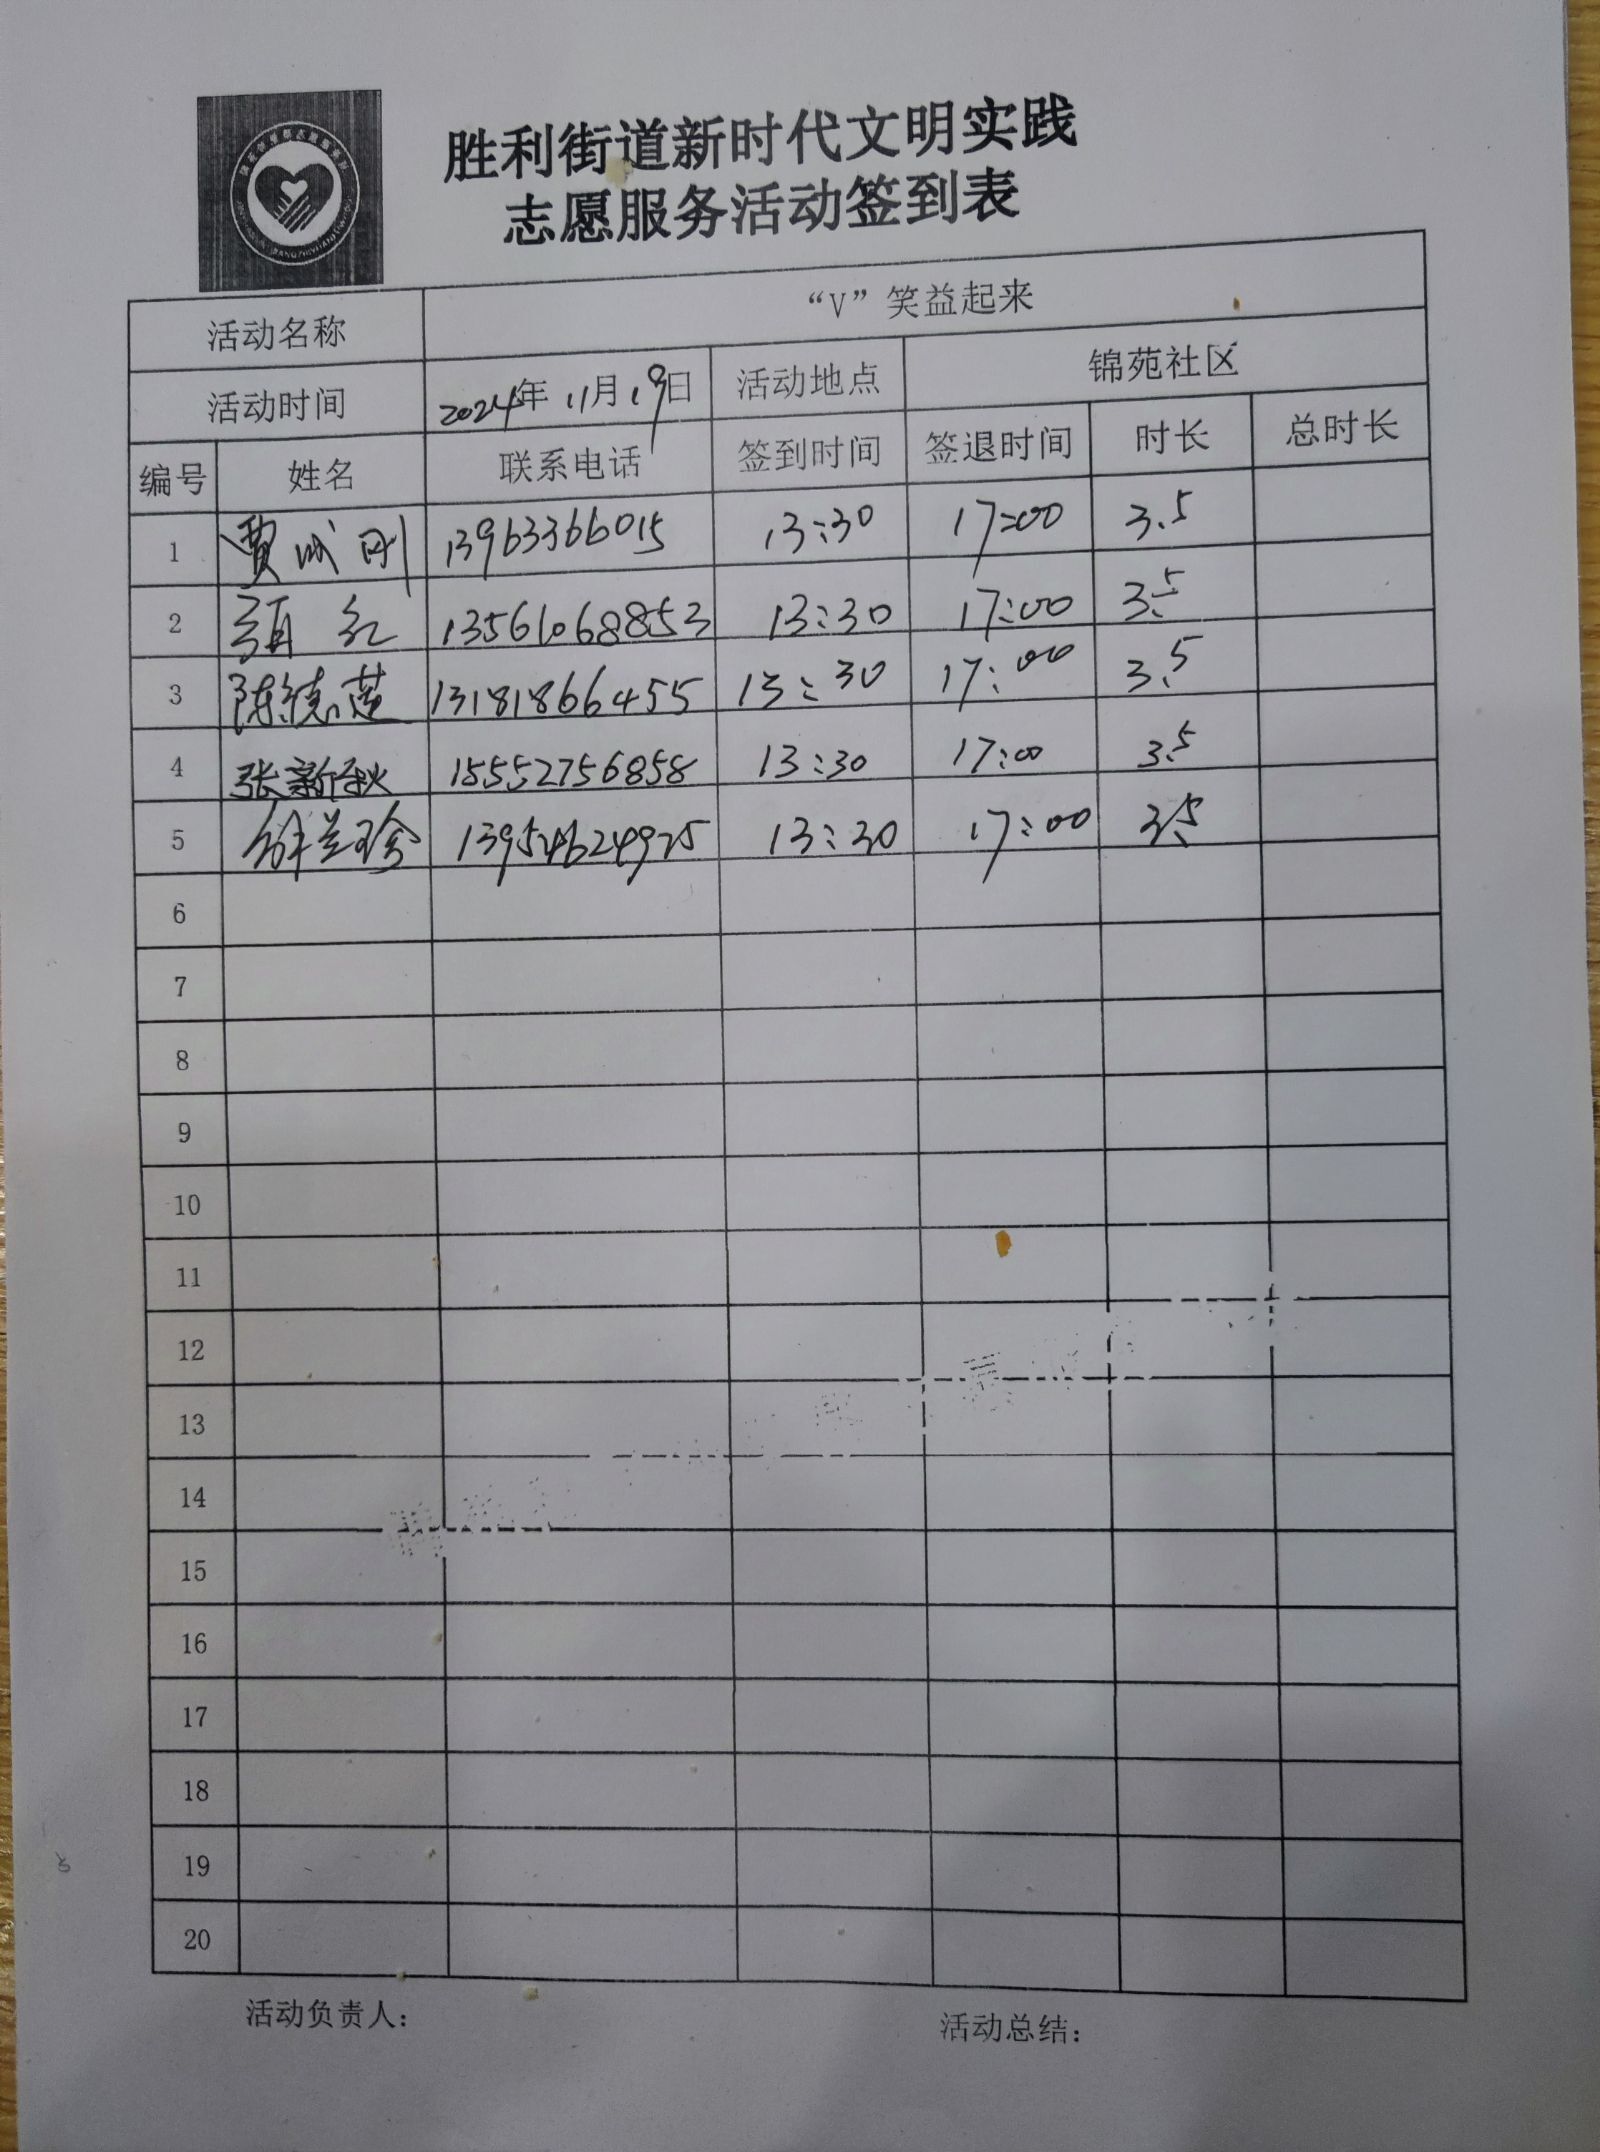 胜利街道新时代文明实践
志愿服务活动签到表
活动名称 “V”笑益起来
活动时间 2024年11月19日 活动地点 锦苑社区
编号 姓名 联系电话 签到时间 签退时间 时长 总时长
1 贾成刚 13963366015 13:30 17:00 3.5
2 红 13561068853 13:30 17:00 3.5
3 陈德莲 13181866455 13:30 17:00 3.5
4 张新秋 15552756858 13:30 17:00 3.5
5 徐兰珍 13954624925 13:30 17:00 3.5
6
7
8
9
10
11
12
13
14
15
16
17
18
19
20
活动负责人: 活动总结: